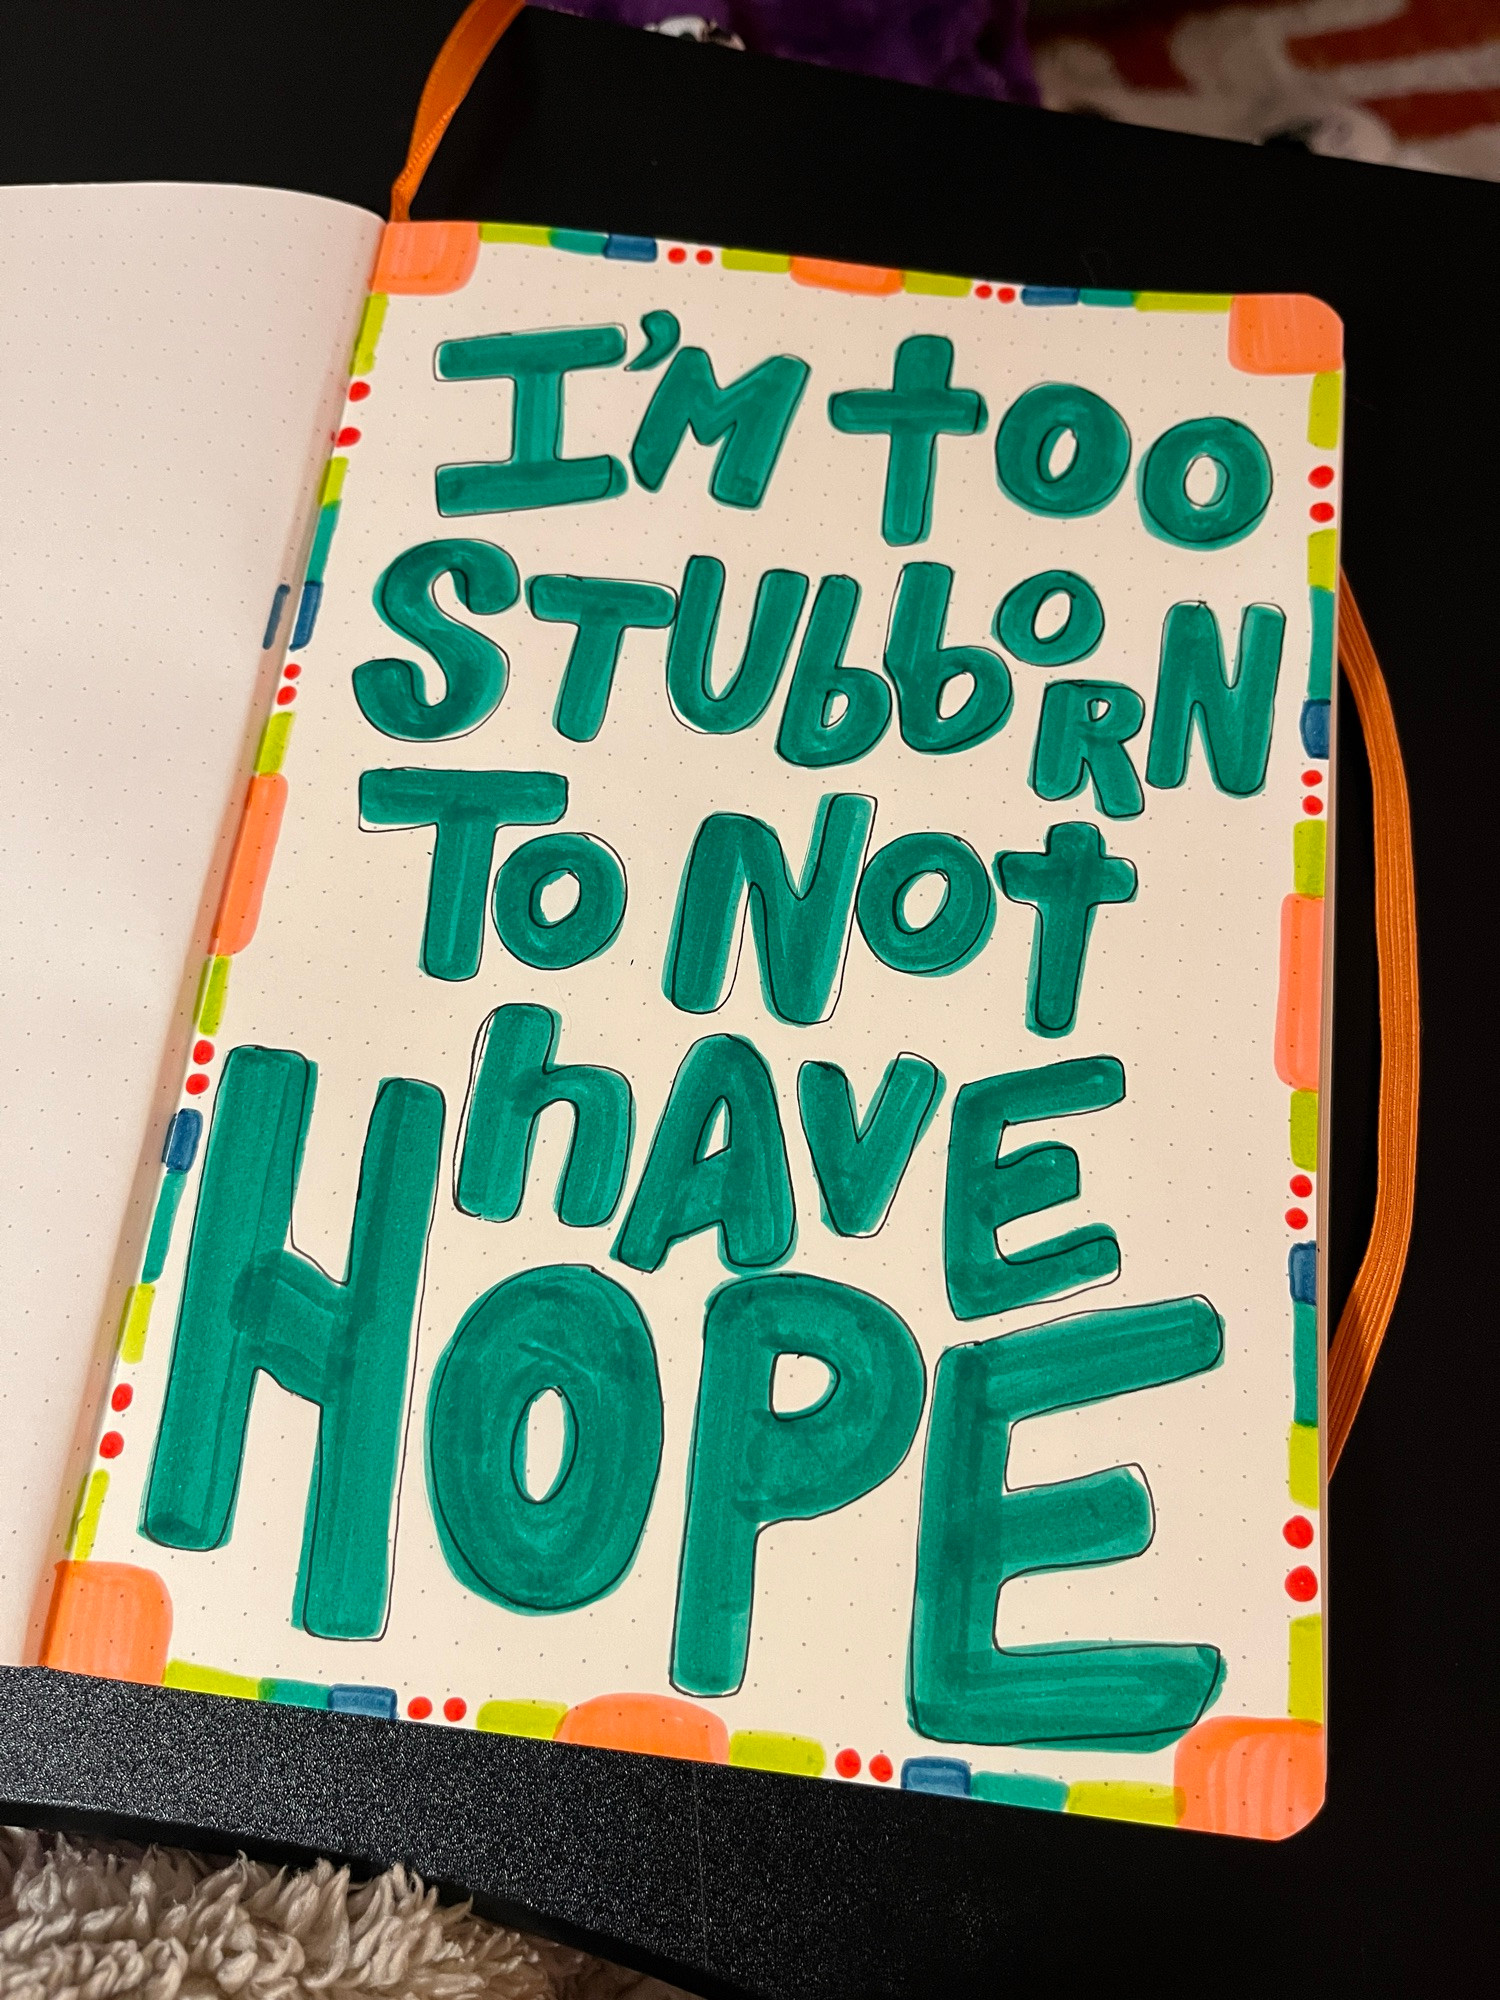 I'M tOO
STUbbORN
To NOt
hAVE
HOPE